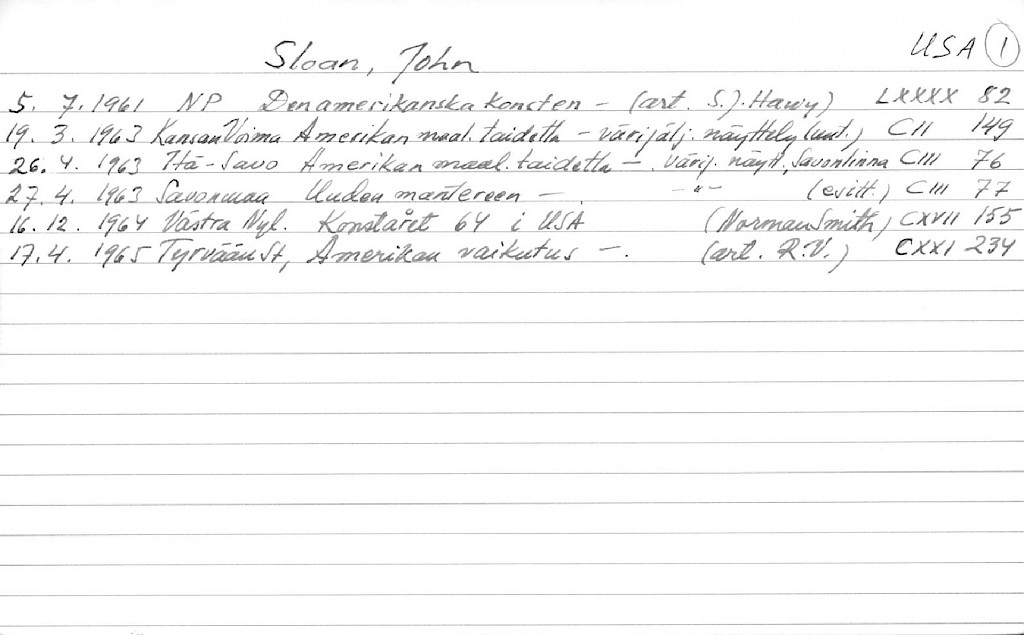 USA 1
Sloan, John
5. 7. 1961 NP Den amerikanska konsten - (art. S.J. Hawy) LXXXX 82
19. 3. 1963 Kansan Voima Amerikan maal. taidetta - värijälj. näyttely (uut.) CII 149
26. 4. 1963 Itä-Savo Amerikan maal. taidetta - värij. näytt. Savonlinna CIII 76
27. 4. 1963 Savonmaa Uuden mantereen - -"- (esitt.) CIII 77
16. 12. 1964 Västra Nyl. Konståret 64 i USA (Norman Smith) CXVII 155
17. 4. 1965 Tyrvään St, Amerikan vaikutus -. (art. R.V.) CXXI 234